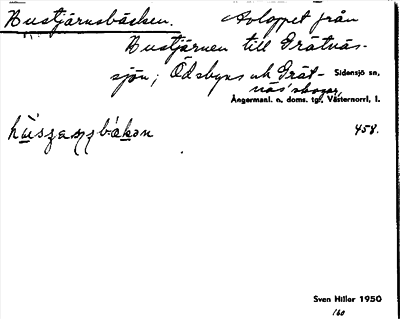 Bustjärnsbäcken. Avloppet från
Bustjärnen till Grätnäs-
sjön; Ödsbyns och Grät-
näs' skogar, Sidensjö sn,
Ångermanl. n. doms. tgr, Västernorrl. l.
458.
Sven Hiller 1950
160